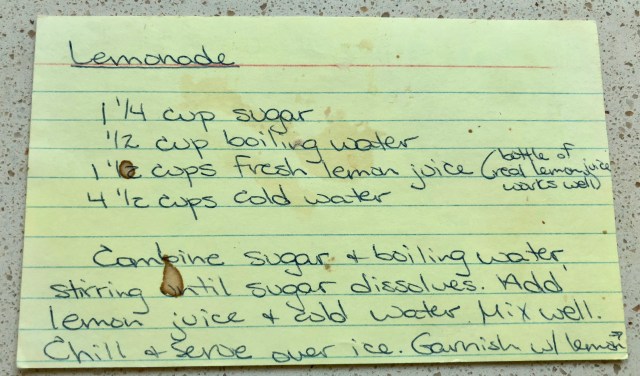 Lemonade
1 1/4 cup sugar
1/2 cup boiling water
1 1/2 cups fresh lemon juice (bottle of real lemon juice works well)
4 1/2 cups cold water
Combine sugar & boiling water,
stirring until sugar dissolves. Add
lemon juice & cold water. Mix well.
Chill & serve over ice. Garnish w/ lemon